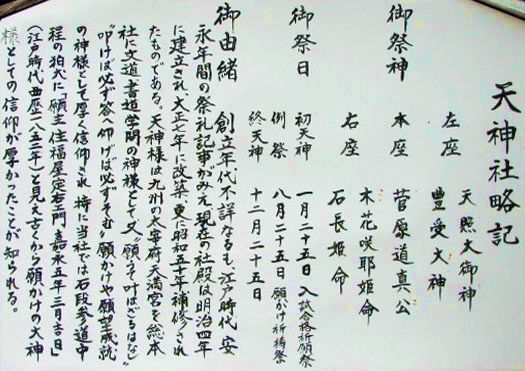 天神社略記
御祭神
左座 天照大御神
豊受大神
本座 菅原道真公
木花咲耶姫命
右座 石長姫命
御祭日
初天神 一月二十五日 入試合格祈願祭
例祭 八月二十五日 願かけ祈祷祭
終天神 十二月二十五日
御由緒 創立年代不詳なるも江戸時代安
永年間の祭礼記事がみえ現在の社殿は明治四年
に建立され、大正七年に改築、更に昭和五十年補修され
たものである。天神様は九州の太宰府天満宮を総本
社に文道・書道・学問の神様として又〝願うて叶はざるはなし〟
〝叩けば必ず答へ仰げば必ずそむ〟願かけや願望成就
の神様として厚く信仰され、特に当社では石段参道中
程の狛犬に「願主 住福屋定右ヱ門・嘉永五年三月吉日」
(江戸時代西歴一八五二年)と見え古くから願かけの天神
様としての信仰が厚かったことが知られる。